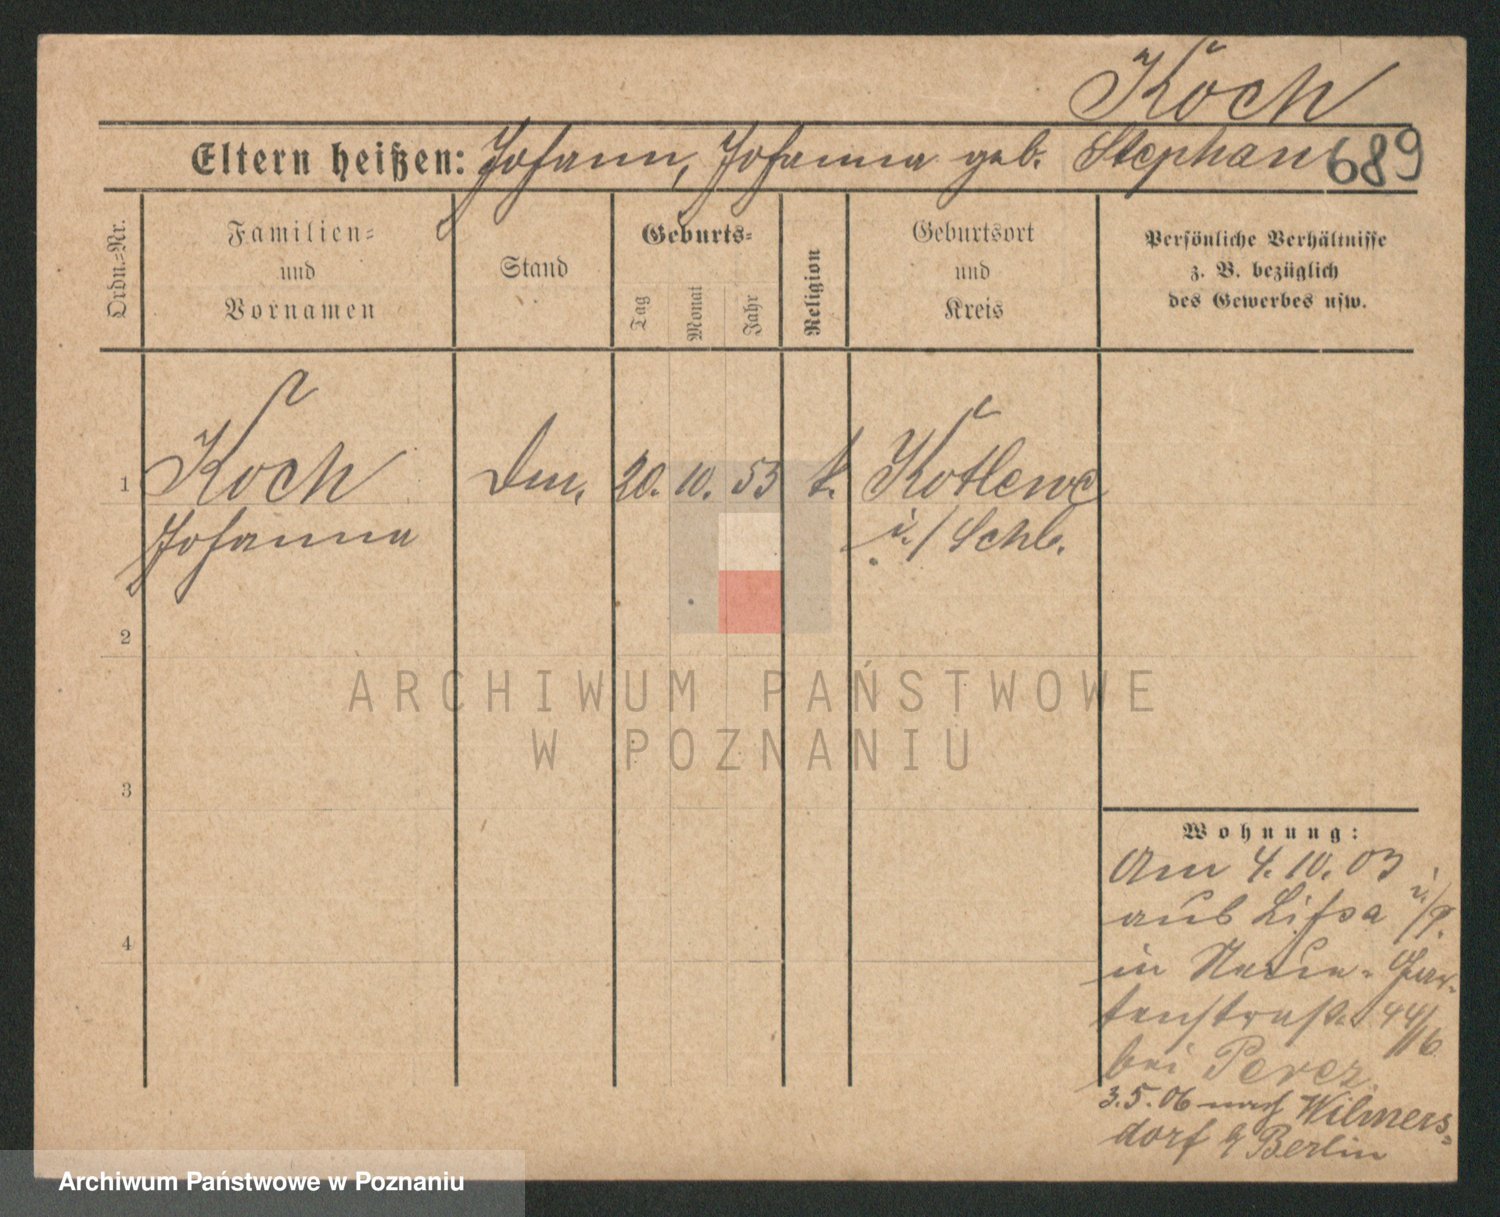 Koch
Eltern heißen: Johann, Johanna geb. Stephan 689
Ordn.-Nr.
Familien-
und
Vornamen
Stand
Geburts-
Tag
Monat
Jahr
Religion
Geburtsort
und
Kreis
Persönliche Verhältnisse
z. B. bezüglich
des Gewerbes usw.
1 Koch 20. 10. 53 k. Kotlewe
Johanna i./Schl.
2
3
4
ARCHIWUM PAŃSTWOWE
W POZNANIU
Wohnung:
Am 4.10.03
aus Lissa i./P.
in Neue-Gar-
tenstraße 44/6
bei Perez.
3.5.06 nach Wilmers-
dorf b/Berlin
Archiwum Państwowe w Poznaniu